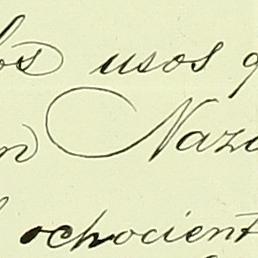 los usos q
n Naza
l ochocient